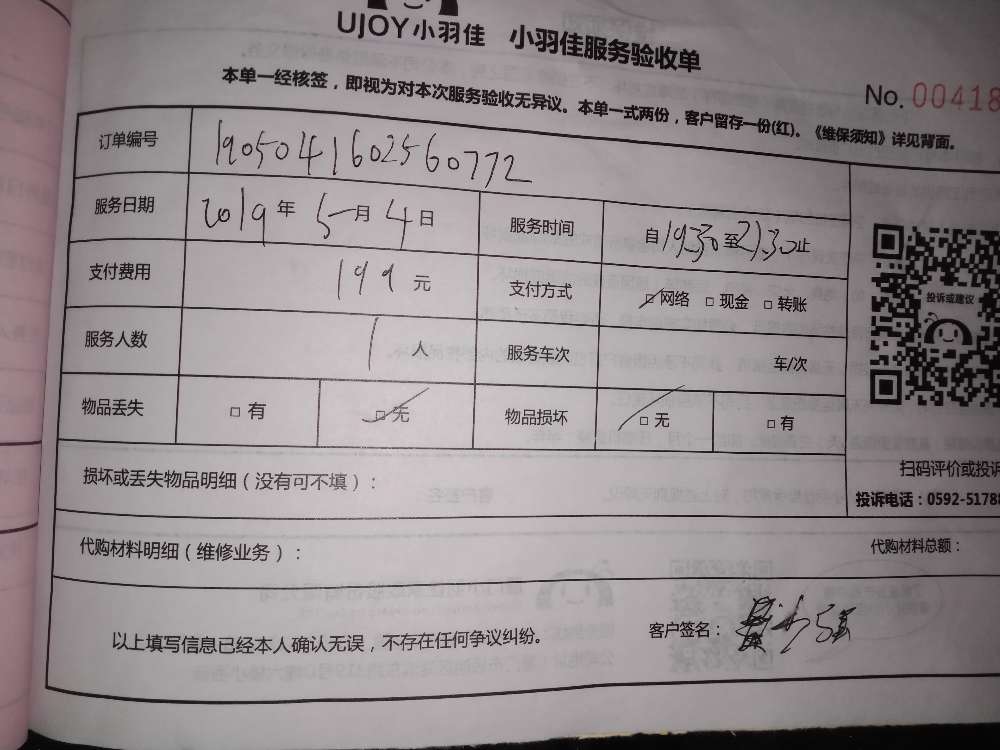 UJOY小羽佳 小羽佳服务验收单
本单一经核签，即视为对本次服务验收无异议。本单一式两份，客户留存一份(红)。《维保须知》详见背面。
No. 00418
订单编号 190504160256077​2
服务日期 2019年5月4日 服务时间 自19:30至21:30止
支付费用 199元 支付方式 □网络 □现金 □转账
服务人数 1人 服务车次 车/次
物品丢失 □有 □无 物品损坏 □无 □有
投诉或建议
扫码评价或投诉
投诉电话：0592-51788
损坏或丢失物品明细（没有可不填）：
代购材料明细（维修业务）： 代购材料总额：
以上填写信息已经本人确认无误，不存在任何争议纠纷。 客户签名：